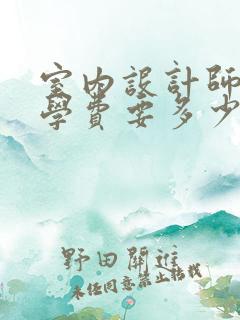 室内設計師
學費要多少
野田開進
未經同意禁止轉載